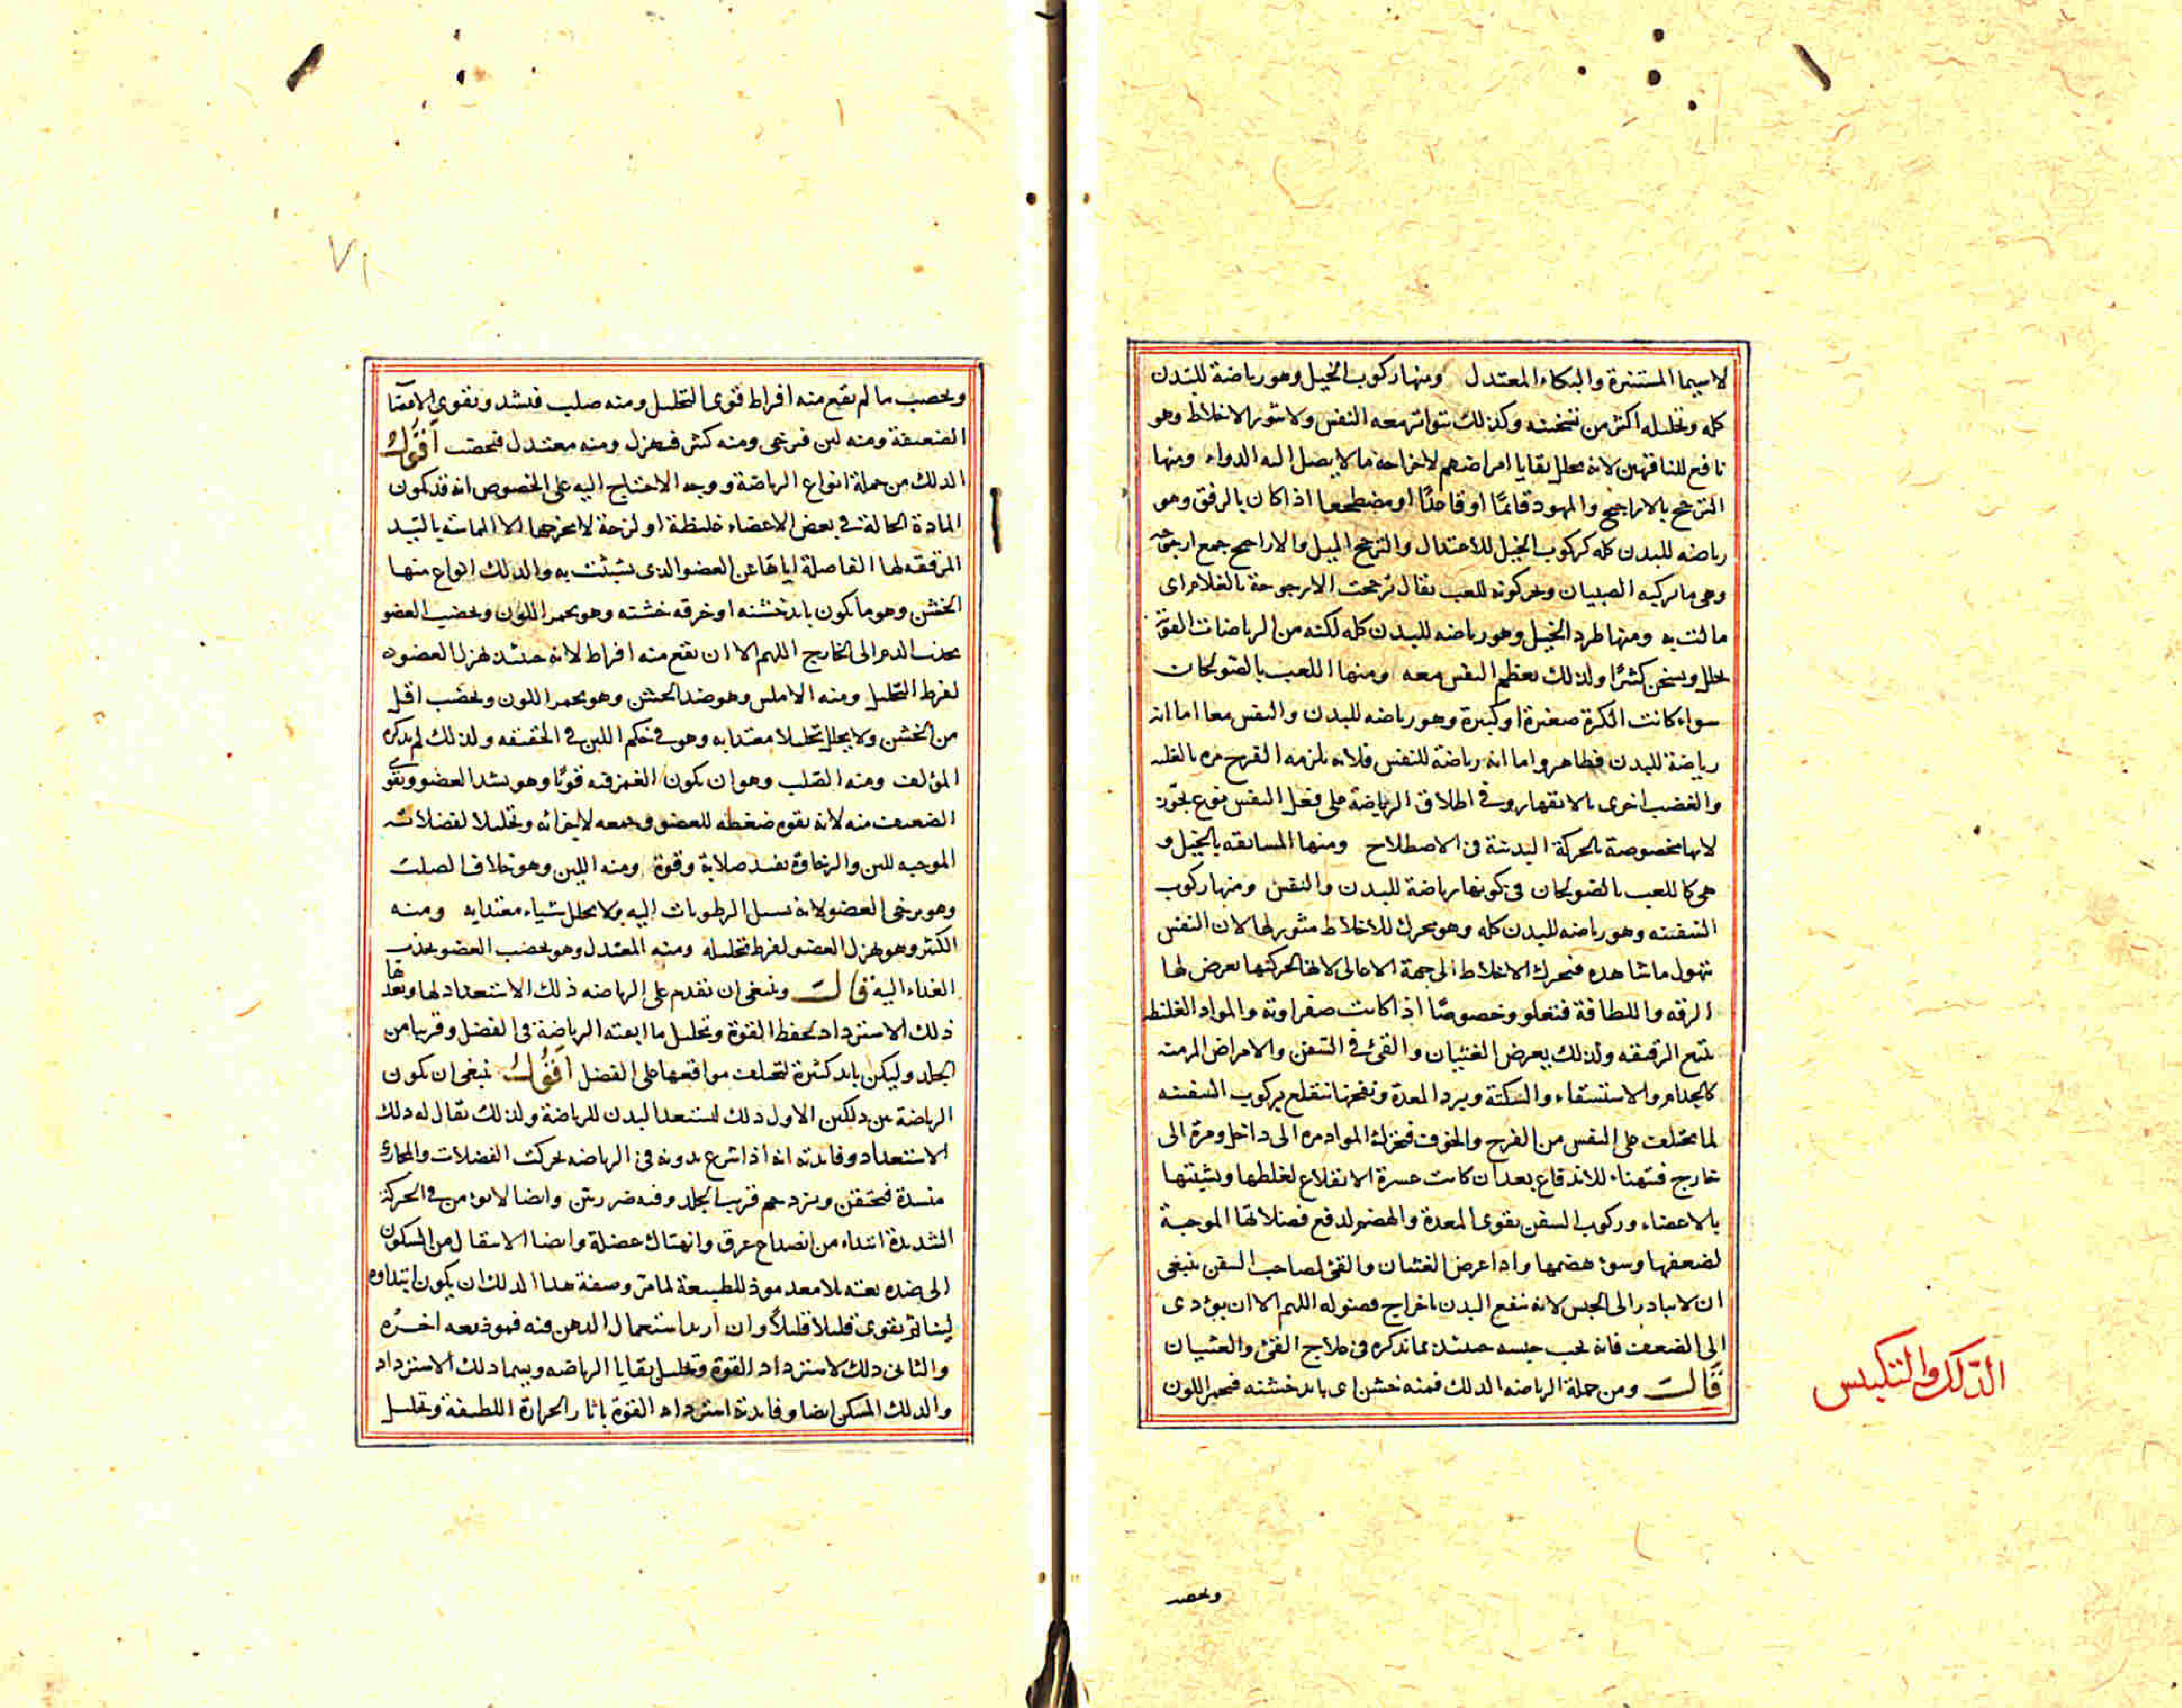 لا سيما المستنيرة والبكاء المعتدل ومنها ركوب الخيل وهو رياضة للبدن
كله وتحليله اكثر من تسخينه وكذلك تتواتر معه النفس ولا تثور الاخلاط وهو
نافع للناقهين لانه يحلل بقايا امراضهم لاخراجه ما لا يصل اليه الدواء ومنها
الترجح بالاراجيح والمهود قائمًا او قاعدًا او مضطجعا اذا كان بالرفق وهو
رياضه للبدن كله كركوب الخيل للاعتدال والترجح الميل والاراجيح جمع ارجوحة
وهى ما تركبه الصبيان ويحركونه للعب يقال ترجحت الارجوحة بالغلام اى
مالت به ومنها طرد الخيل وهو رياضه للبدن كله لكنه من الرياضات القوية
يحلل ويسخن كثيرًا ولذلك يعظم النفس معه ومنها اللعب بالصولجان
سواء كانت الكرة صغيرة او كبيرة وهو رياضه للبدن والنفس معا اما انه
رياضة للبدن فظاهر واما انه رياضة للنفس فلانه يلزمه الفرح مره بالغلبه
والغضب اخرى بالانقهار وفى اطلاق الرياضة على فعل النفس نوع تجوز
لانها مخصوصة بالحركة البدنية فى الاصطلاح ومنها المسابقه بالخيل و
هى كاللعب بالصولجان فى كونها رياضة للبدن والنفس ومنها ركوب
السفينه وهو رياضه للبدن كله وهو محرك للاخلاط مثور لها لان النفس
تهول ما تشاهده فتحرك الاخلاط الى جهة الاعالى لانها لحركتها يعرض لها
الرقه واللطافة فتعلو وخصوصًا اذا كانت صفراويه والمواد الغليظه
تتبع الرقيقه ولذلك يعرض الغثيان والقئ فى السفن والامراض المزمنه
كالجذام والاستسقاء والسكتة وبرد المعدة ونفختها تنقلع بركوب السفينه
لما يختلف على النفس من الفرح والخوف فتحرك المواد مره الى داخل ومرة الى
خارج فتتهيأ للاندفاع بعد ان كانت عسرة الانقلاع لغلظها وتشبثها
بالاعضاء وركوب السفن يقوى المعدة والهضم لدفع فضلاتها الموجبة
لضعفها وسوء هضمها واذا عرض الغثيان والقئ لصاحب السفن ينبغى
ان لا يبادر الى الحبس لانه ينفع البدن باخراج فضوله اللهم الا ان يودى
الى الضعف فانه يجب حبسه حينئذ بما نذكره فى علاج القئ والغثيان
قال ومن جملة الرياضه الدلك فمنه خشن اى بايد خشنه فيحمر اللون
الدلك والتكبيس
ويخصب
٧١
ويخصب ما لم يقع منه افراط قوى التحليل ومنه صلب فيشد ويقوى الاعضا
الضعيفة ومنه لين فيرخى ومنه كثير فيهزل ومنه معتدل فيخصب اقول
الدلك من جملة انواع الرياضة ووجه الاحتياج اليه على الخصوص انه قد تكون
المادة الحالة فى بعض الاعضاء غليظة او لزجة لا يخرجها الا المماسه باليد
المرققه لها الفاصلة اياها عن العضو الذى تشبثت به والدلك انواع منها
الخشن وهو ما يكون بايد خشنه او خرقه خشنه وهو يحمر اللون ويخصب العضو
بجذب الدم الى الخارج اللهم الا ان يقع منه افراط لانه حينئذ يهزل العضو
لفرط التحليل ومنه الاملس وهو ضد الخشن وهو يحمر اللون ويخصب اقل
من الخشن ولا يحلل تحليلا معتدا به وهو فى حكم اللين فى الحقيقه ولذلك لم يذكره
المؤلف ومنه الصلب وهو ان يكون الغمز فيه قويًا وهو يشد العضو ويقوى
الضعيف منه لانه بقوه ضغطه للعضو وجمعه لاجزائه وتحليلا لفضلاته
الموجبه للين والرخاوة يفيد صلابة وقوة ومنه اللين وهو خلاف الصلب
وهو يرخى العضو لانه يسيل الرطوبات اليه ولا يحلل شياء معتدا به ومنه
الكثير وهو يهزل العضو لفرط تحليله ومنه المعتدل وهو يخصب العضو بجذب
الغذاء اليه قال وينبغى ان يقدم على الرياضه ذلك الاستعداد لها وبعدها
ذلك الاسترداد لحفظ القوة وتحليل ما ابقته الرياضة فى العضل وقريبا من
الجلد وليكن بايد كثيرة لتختلف مواقعها على العضل اقول ينبغى ان تكون
الرياضة بين دلكين الاول دلك ليستعد البدن للرياضة ولذلك يقال له دلك
الاستعداد وفايدته انه اذا شرع بدونه فى الرياضه تحركت الفضلات والمجارى
منسدة فتحتقن وتزدحم قريب الجلد وفيه ضرر بين وايضا لا يؤمن فى الحركة
الشديدة ابتداء من انصداع عرق وانهتاك عضلة وايضا الانتقال من السكون
الى ضده بغته بلا معد موذ للطبيعة لما مر وصفة هذا الدلك ان يكون ابتداوه
لينا ثم يقوى قليلا قليلاً وان اريد استعمال الدهن فيه فهو
والثانى دلك لاسترداد القوة وتحليل بقايا الرياضه ويسما دلك الاسترداد
والدلك المسكن ايضا وفايدته استرداد القوة باثارة الحرارة اللطيفة وتحليل